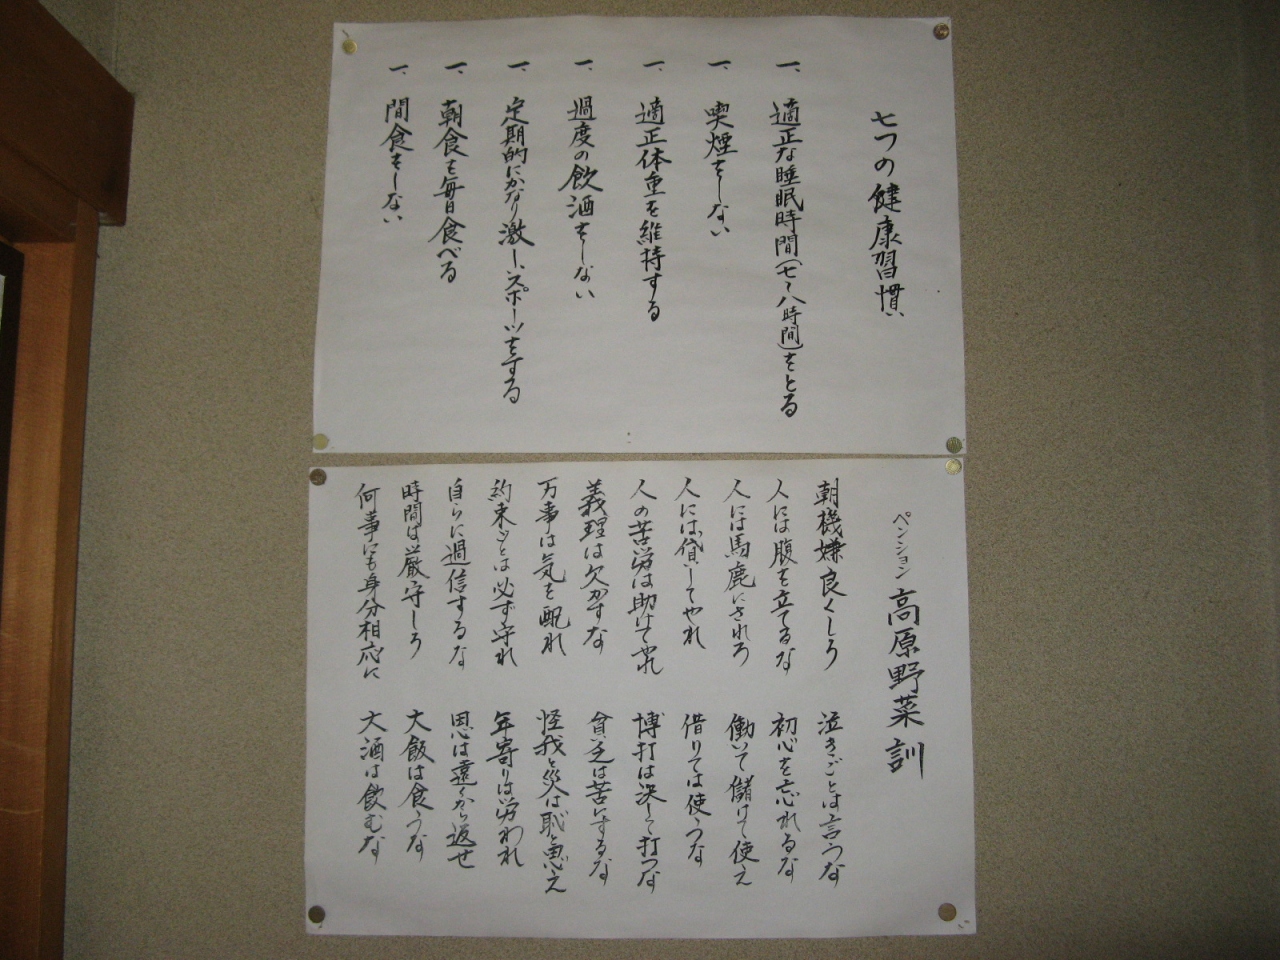 七つの健康習慣
一、適正な睡眠時間(七〜八時間)をとる
一、喫煙をしない
一、適正体重を維持する
一、過度の飲酒をしない
一、定期的にかなり激しいスポーツをする
一、朝食を毎日食べる
一、間食をしない
ペンション 高原野菜訓
朝機嫌良くしろ
人には腹を立てるな
人には馬鹿にされろ
人には貸してやれ
人の苦労は助けてやれ
義理は欠かすな
万事は気を配れ
約束ごとは必ず守れ
自らに過信するな
時間は厳守しろ
何事にも身分相応に
泣きごとは言うな
初心を忘れるな
働いて儲けて使え
借りては使うな
博打は決して打つな
貧乏は苦にするな
怪我と災は恥と思え
年寄りは労われ
恩は遠くから返せ
大飯は食うな
大酒は飲むな